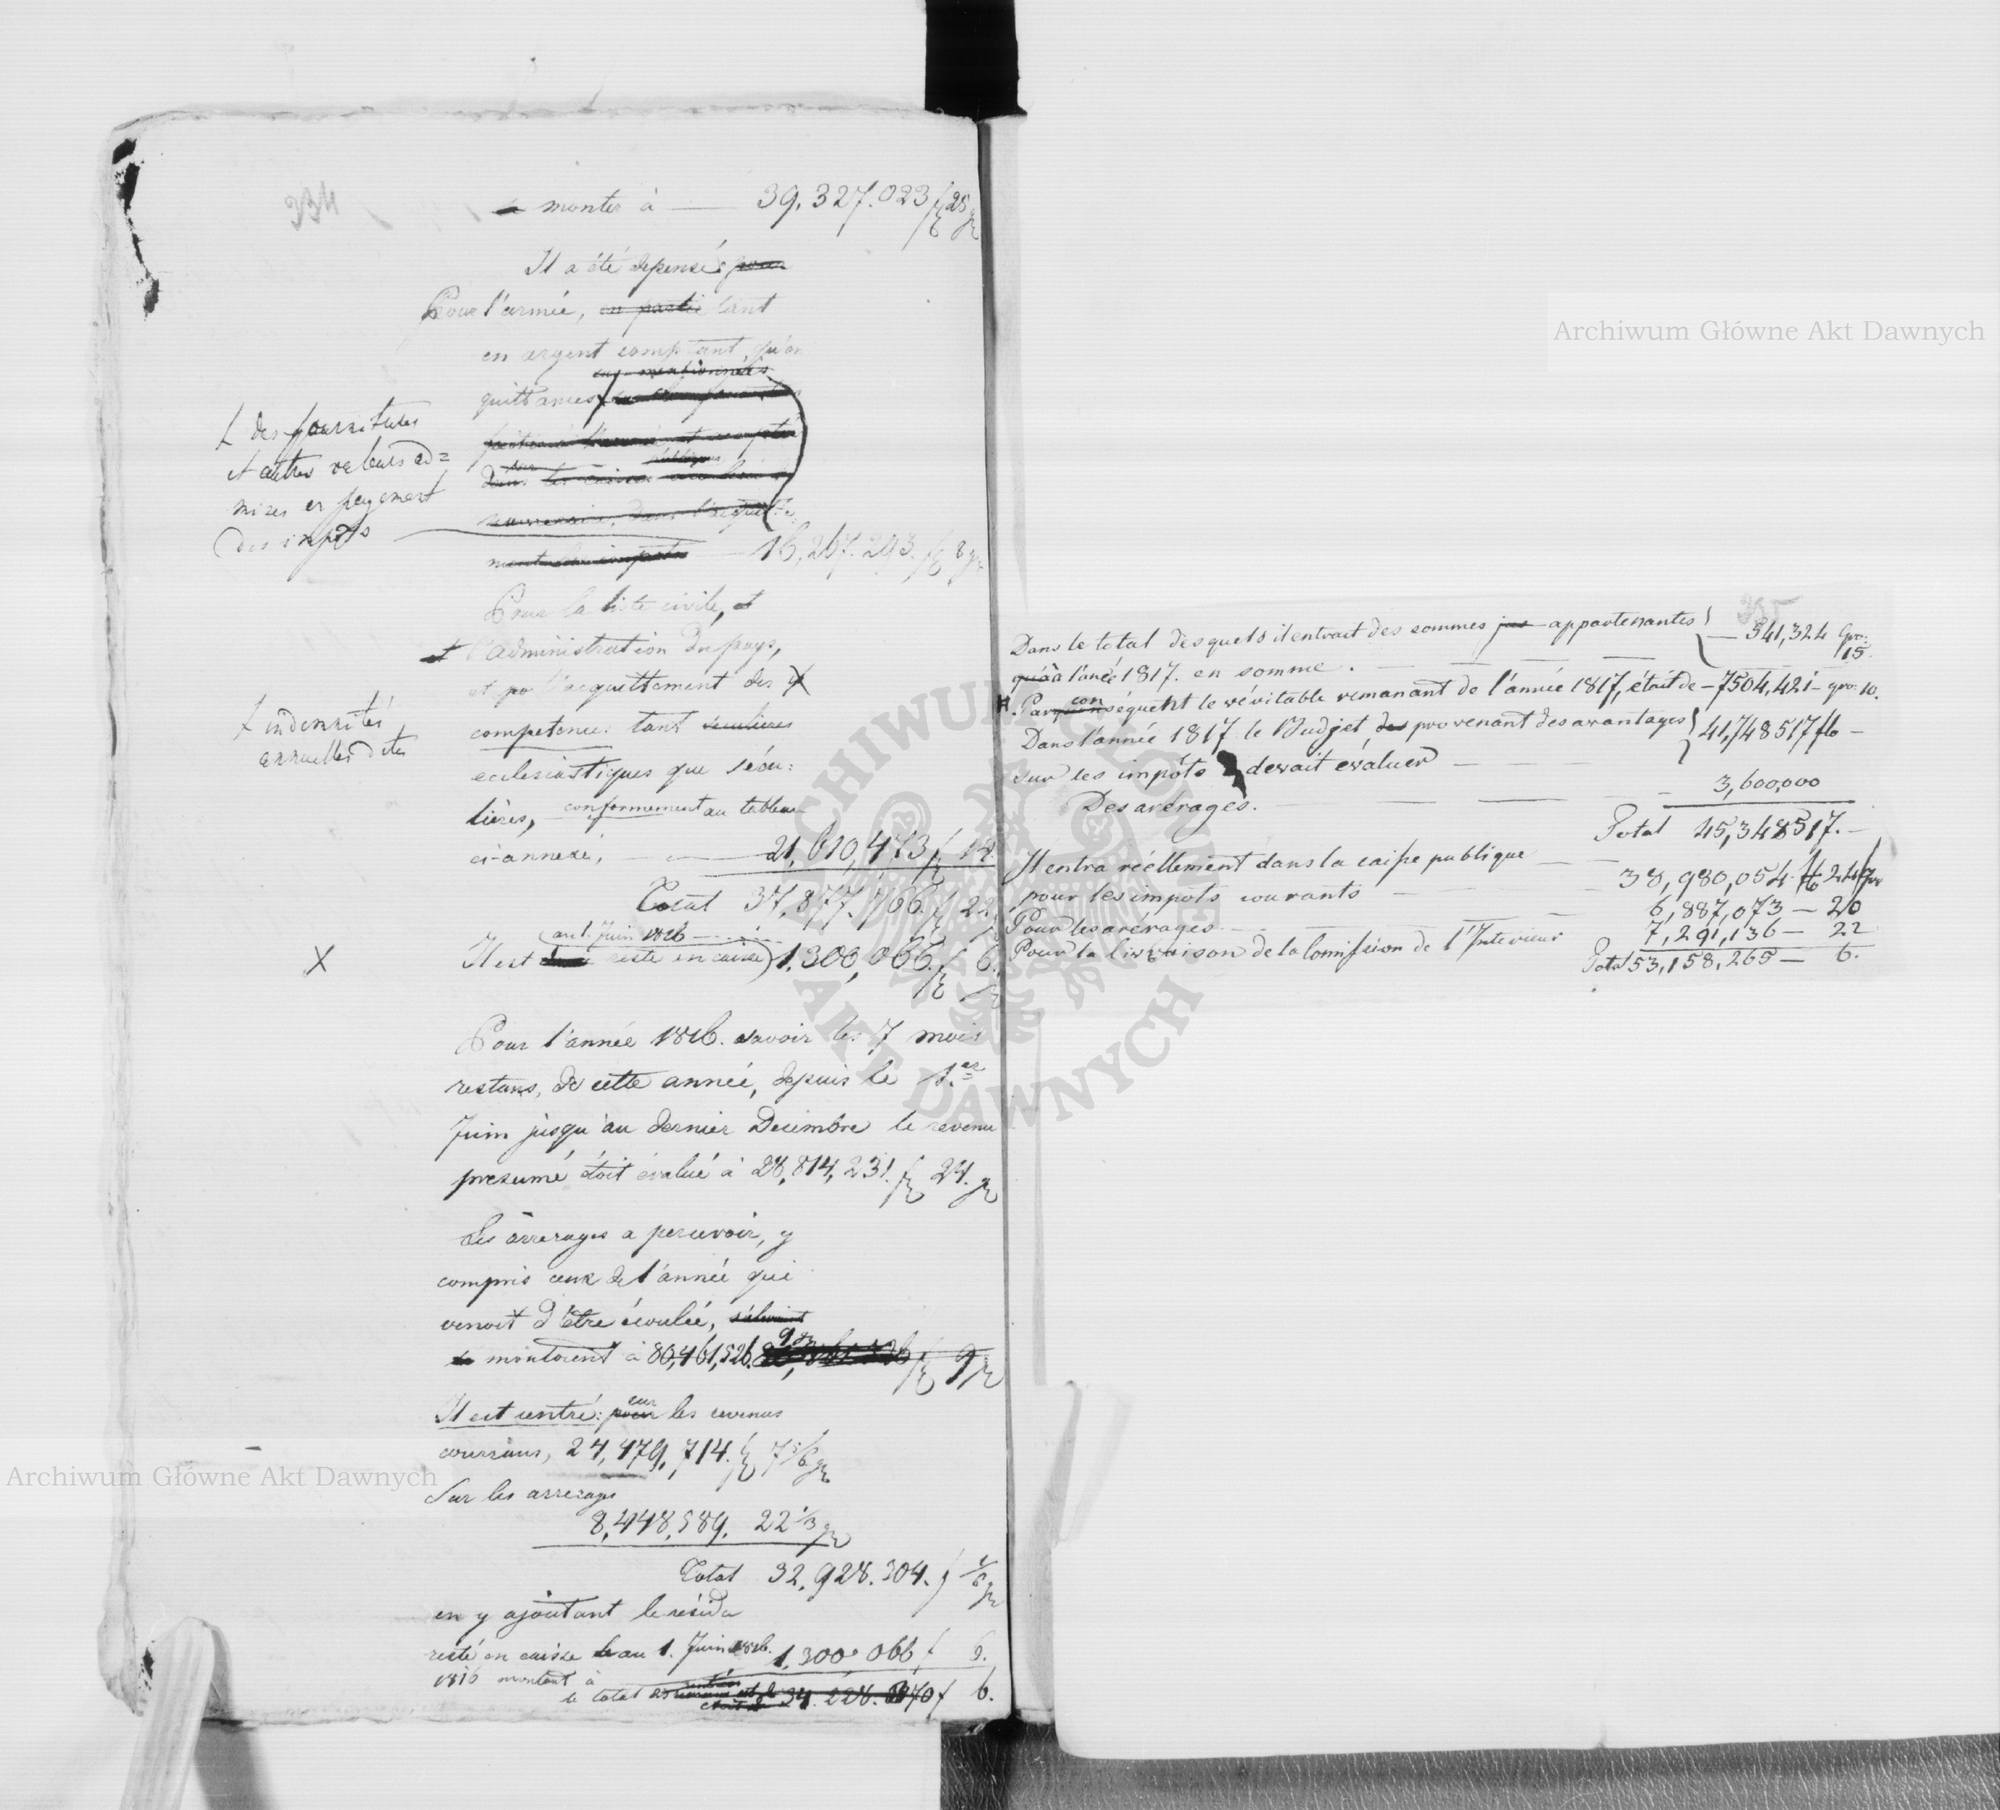 334
monter à — 39.327.023 f 25 gr
Il a été depensé: pour
Pour l'armée, en partie tant
en argent comptant, qu'en
sus-mentionnées
quittances
des fournitures
et autres valeurs ad=
mises en payement
des impôts
ment des impots — 16,267.293. f 8 gr
Pour la liste civile, et
et l'administration du pays,
et pr l'acquettement des
indemnités
annuelles dites
competences tant
ecclesiastiques que sécu:
lières, conformement au tableau
ci-annexé, — 21,610,473 f
Total 37,877.766. f 22
au 1. Juin 1816
Il est resté en caisse 1,300,066. f 6.
Pour l'année 1816. savoir les 7 mois
restans, de cette année, depuis le 1.er
Juin jusqu'au dernier Decembre le revenu
presumé étoit évalué à 28,814,231. f 24. gr
Les arrerages a percevoir, y
compris ceux de l'année qui
venoit d'être écoulée,
se montoient à 80,461,526. f 9 gr
Il est entré: pour sur les revenus
courrans, 24,479,714. f 7 5/6 gr
Sur les arrerages
8,448,589. 22 1/3 gr
Total 32,928.304. f 1/6 gr
en y ajoutant le résidu
resté en caisse au 1. Juin 1816. 1,300,066 f 6.
1816 montant à
le total 34.228.370 f 6.
335
Dans le total desquels il entrait des sommes appartenantes — 541,324 gro: 15.
qu'à à l'année 1817. en somme. —
Par conséquent le véritable remanant de l'année 1817, était de — 7504,421 — gro: 10.
Dans l'année 1817 le Budjet des provenant des avantages 41,748517 flo —
sur les impôts devait évaluer —
Des arérages. — 3,600,000
Total 45,348517. —
Il entra réellement dans la caisse publique —
pour les impots courants — 38,980,054 fl 24 gr
Pour les arérages — 6,887,073 — 20
Pour la livraison de la Comission de l'Interieur — 7,291,136 — 22
Total 53,158,265 — 6.
Archiwum Główne Akt Dawnych
Archiwum Główne Akt Dawnych
ARCHIWUM GŁÓWNE AKT DAWNYCH